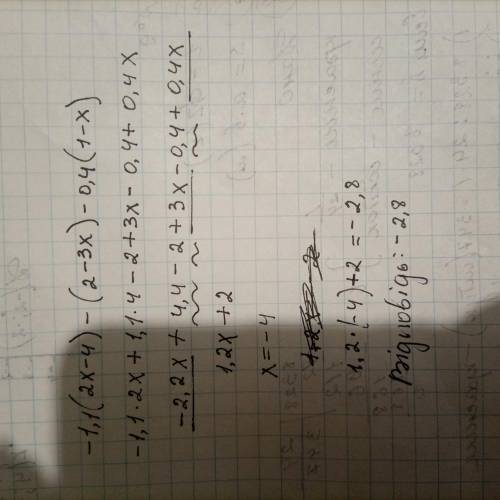 -1,1(2x-4)-(2-3x)-0,4(1-x)
-1,1·2x+1,1·4-2+3x-0,4+0,4x
-2,2x+4,4-2+3x-0,4+0,4x
1,2x+2
x=-4
1,2·(-4)+2=-2,8
Відповідь:-2,8